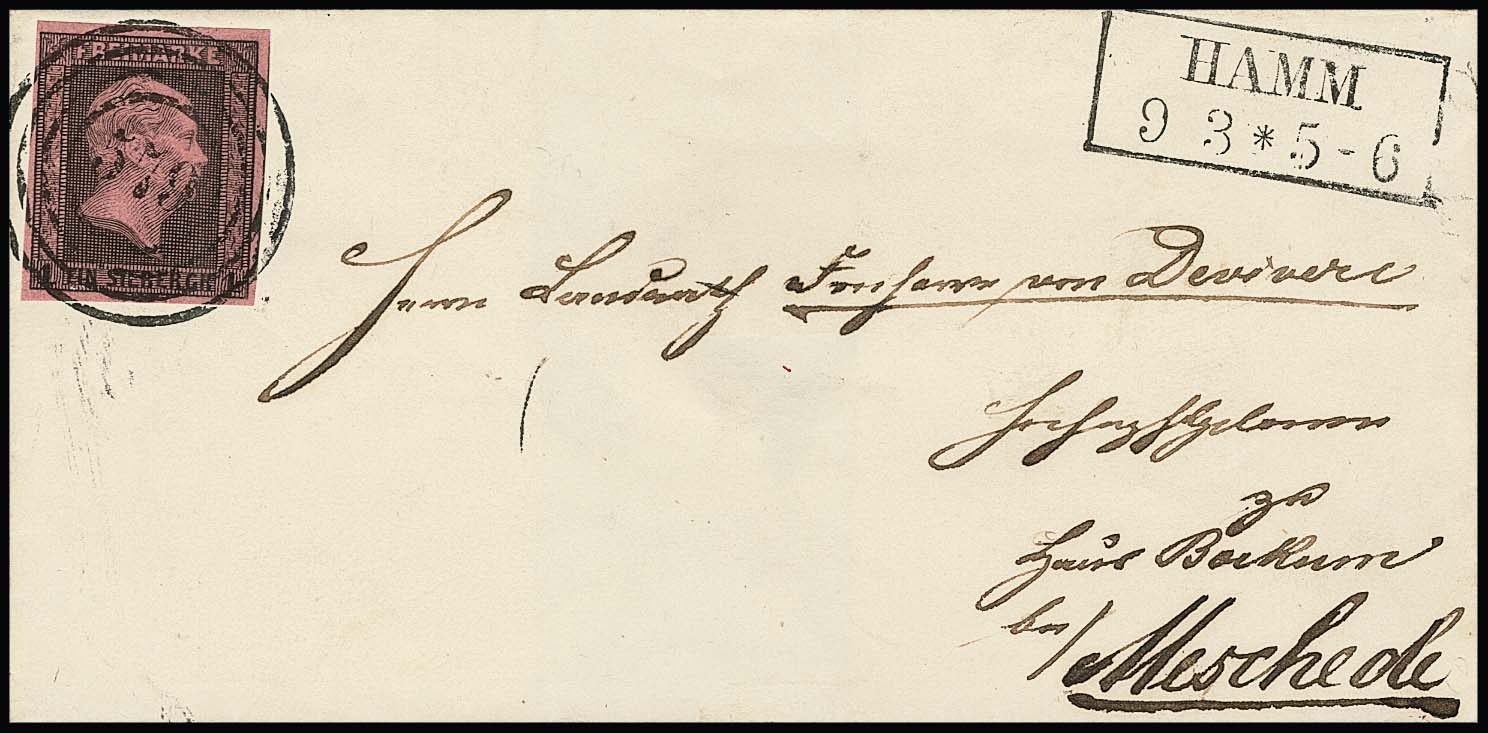 FREIMARKE
1 EIN SILBERGR. 1
HAMM
9 3 * 5-6
Herrn Landrath Freiherrn von Devivere
Hochwohlgeboren
zu
Haus Bockum
bei
Meschede